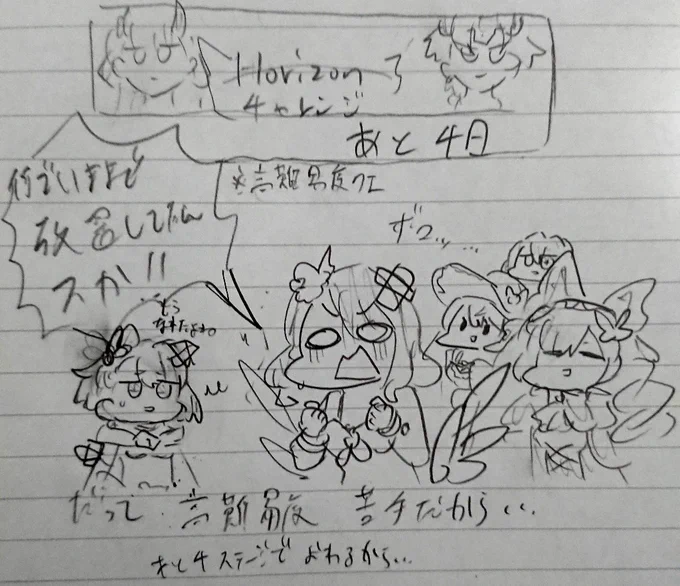 Horizon
チャレンジ
あと 4日
※高難易度クエ
何でいままで
放置してたん
スか!!
ザワッ…
もう
なれたよね。
だって 高難易度 苦手だから…
あと4ステージで おわるから…